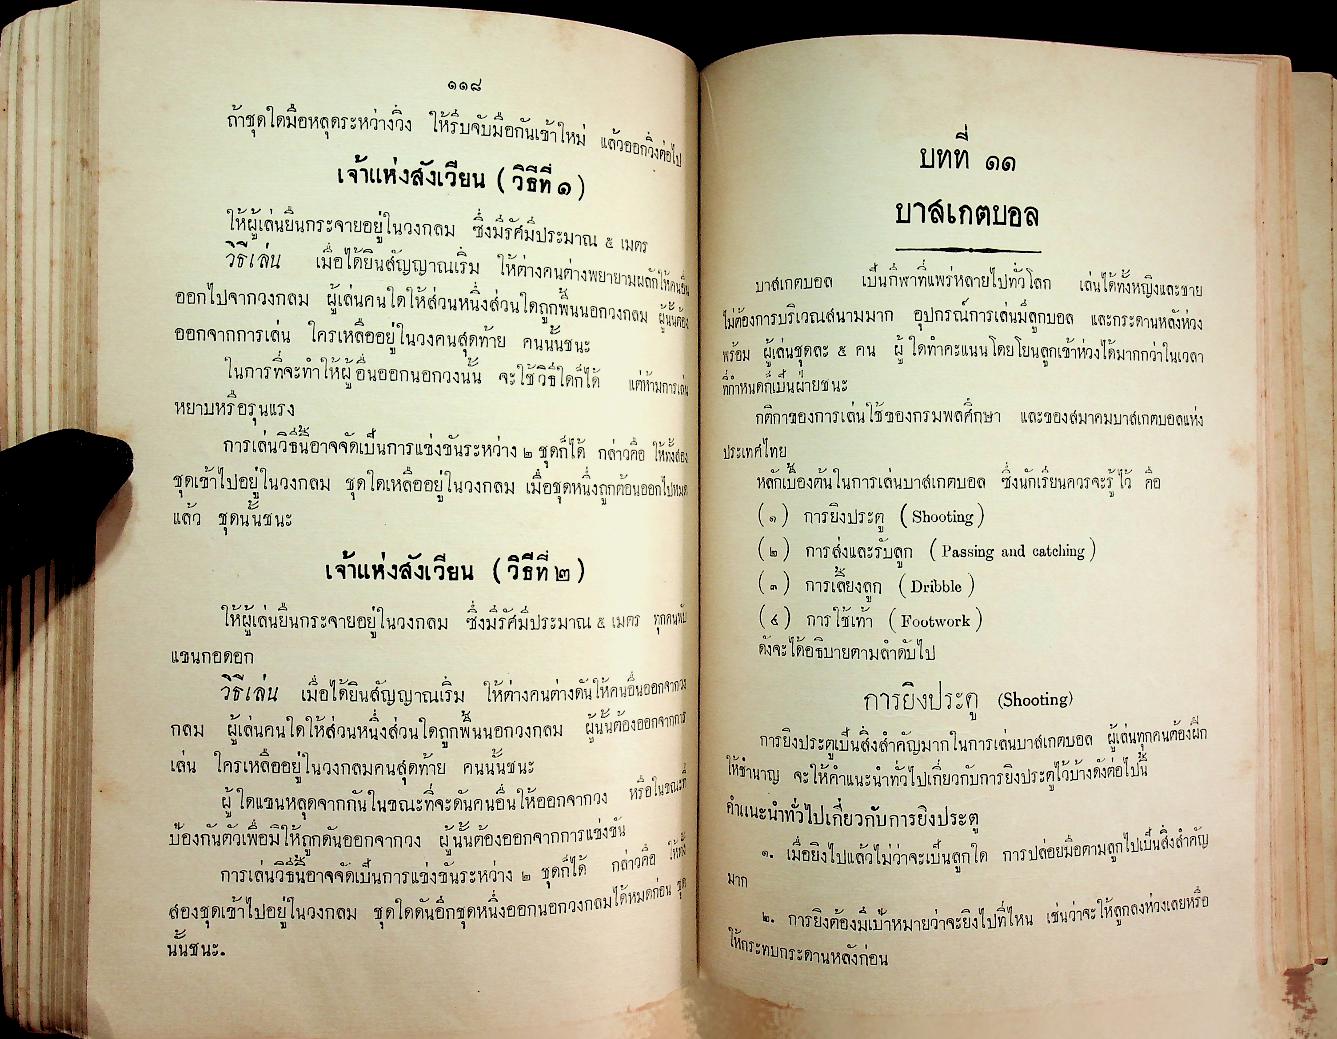 ๑๑๘
ถ้าชุดใดมือหลุดระหว่างวิ่ง ให้รีบจับมือกันเข้าใหม่ แล้วออกวิ่งต่อไป
เจ้าแห่งสังเวียน (วิธีที่ ๑)
ให้ผู้เล่นยืนกระจายอยู่ในวงกลม ซึ่งมีรัศมีประมาณ ๕ เมตร
วิธีเล่น เมื่อได้ยินสัญญาณเริ่ม ให้ต่างคนต่างพยายามผลักให้คนอื่น
ออกไปจากวงกลม ผู้เล่นคนใดให้ส่วนหนึ่งส่วนใดถูกพื้นนอกวงกลม ผู้นั้นต้อง
ออกจากการเล่น ใครเหลืออยู่ในวงคนสุดท้าย คนนั้นชนะ
ในการที่จะทำให้ผู้อื่นออกนอกวงนั้น จะใช้วิธีใดก็ได้ แต่ห้ามการเล่น
หยาบหรือรุนแรง
การเล่นวิธีนี้อาจจัดเป็นการแข่งขันระหว่าง ๒ ชุดก็ได้ กล่าวคือ ให้ทั้งสอง
ชุดเข้าไปอยู่ในวงกลม ชุดใดเหลืออยู่ในวงกลม เมื่อชุดหนึ่งถูกต้อนออกไปหมด
แล้ว ชุดนั้นชนะ
เจ้าแห่งสังเวียน (วิธีที่ ๒)
ให้ผู้เล่นยืนกระจายอยู่ในวงกลม ซึ่งมีรัศมีประมาณ ๕ เมตร ทุกคนพับ
แขนกอดอก
วิธีเล่น เมื่อได้ยินสัญญาณเริ่ม ให้ต่างคนต่างดันให้คนอื่นออกจากวง
กลม ผู้เล่นคนใดให้ส่วนหนึ่งส่วนใดถูกพื้นนอกวงกลม ผู้นั้นต้องออกจากการ
เล่น ใครเหลืออยู่ในวงกลมคนสุดท้าย คนนั้นชนะ
ผู้ใดแขนหลุดจากกันในขณะที่จะดันคนอื่นให้ออกจากวง หรือในขณะที่
ป้องกันตัวเพื่อมิให้ถูกดันออกจากวง ผู้นั้นต้องออกจากการแข่งขัน
การเล่นวิธีนี้อาจจัดเป็นการแข่งขันระหว่าง ๒ ชุดก็ได้ กล่าวคือ ให้ทั้ง
สองชุดเข้าไปอยู่ในวงกลม ชุดใดดันอีกชุดหนึ่งออกนอกวงกลมได้หมดก่อน ชุด
นั้นชนะ.
บทที่ ๑๑
บาสเกตบอล
บาสเกตบอล เป็นกีฬาที่แพร่หลายไปทั่วโลก เล่นได้ทั้งหญิงและชาย
ไม่ต้องการบริเวณสนามมาก อุปกรณ์การเล่นมีลูกบอล และกระดานหลังห่วง
พร้อม ผู้เล่นชุดละ ๕ คน ผู้ใดทำคะแนนโดยโยนลูกเข้าห่วงได้มากกว่าในเวลา
ที่กำหนดก็เป็นฝ่ายชนะ
กติกาของการเล่นใช้ของกรมพลศึกษา และของสมาคมบาสเกตบอลแห่ง
ประเทศไทย
หลักเบื้องต้นในการเล่นบาสเกตบอล ซึ่งนักเรียนควรจะรู้ไว้ คือ
(๑) การยิงประตู (Shooting)
(๒) การส่งและรับลูก (Passing and catching)
(๓) การเลี้ยงลูก (Dribble)
(๔) การใช้เท้า (Footwork)
ดังจะได้อธิบายตามลำดับไป
การยิงประตู (Shooting)
การยิงประตูเป็นสิ่งสำคัญมากในการเล่นบาสเกตบอล ผู้เล่นทุกคนต้องฝึก
ให้ชำนาญ จะให้คำแนะนำทั่วไปเกี่ยวกับการยิงประตูไว้บ้างดังต่อไปนี้
คำแนะนำทั่วไปเกี่ยวกับการยิงประตู
๑. เมื่อยิงไปแล้วไม่ว่าจะเป็นลูกใด การปล่อยมือตามลูกไปเป็นสิ่งสำคัญ
มาก
๒. การยิงต้องมีเป้าหมายว่าจะยิงไปที่ไหน เช่นว่าจะให้ลูกลงห่วงเลยหรือ
ให้กระทบกระดานหลังก่อน